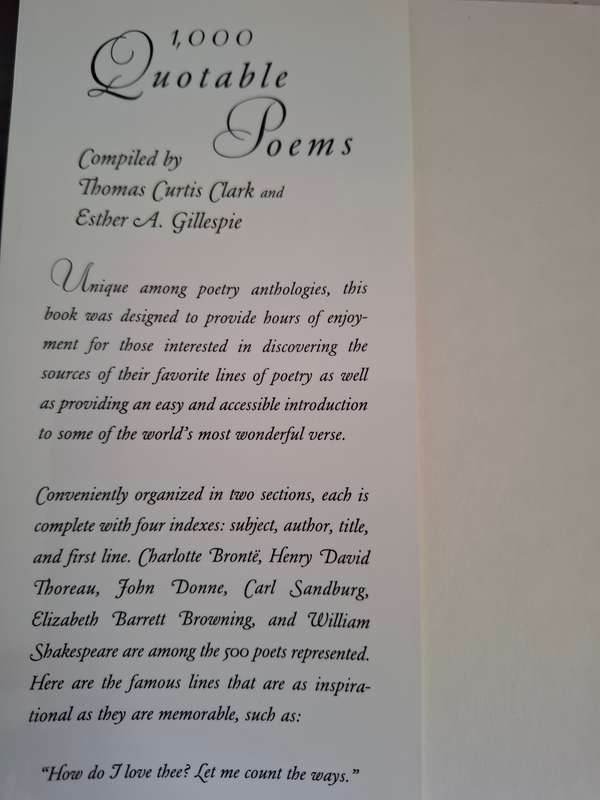 1,000
Quotable
Poems
Compiled by
Thomas Curtis Clark and
Esther A. Gillespie
Unique among poetry anthologies, this
book was designed to provide hours of enjoy-
ment for those interested in discovering the
sources of their favorite lines of poetry as well
as providing an easy and accessible introduction
to some of the world's most wonderful verse.
Conveniently organized in two sections, each is
complete with four indexes: subject, author, title,
and first line. Charlotte Brontë, Henry David
Thoreau, John Donne, Carl Sandburg,
Elizabeth Barrett Browning, and William
Shakespeare are among the 500 poets represented.
Here are the famous lines that are as inspira-
tional as they are memorable, such as:
"How do I love thee? Let me count the ways."